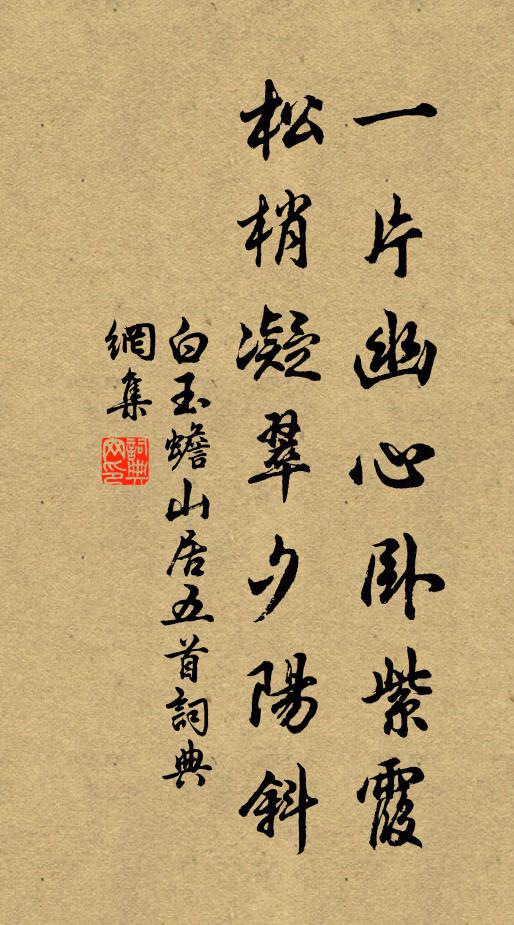 一片幽心卧紫霞
松梢凝翠夕陽斜
白玉蟾山居五首詞典
網集
詞典
网印